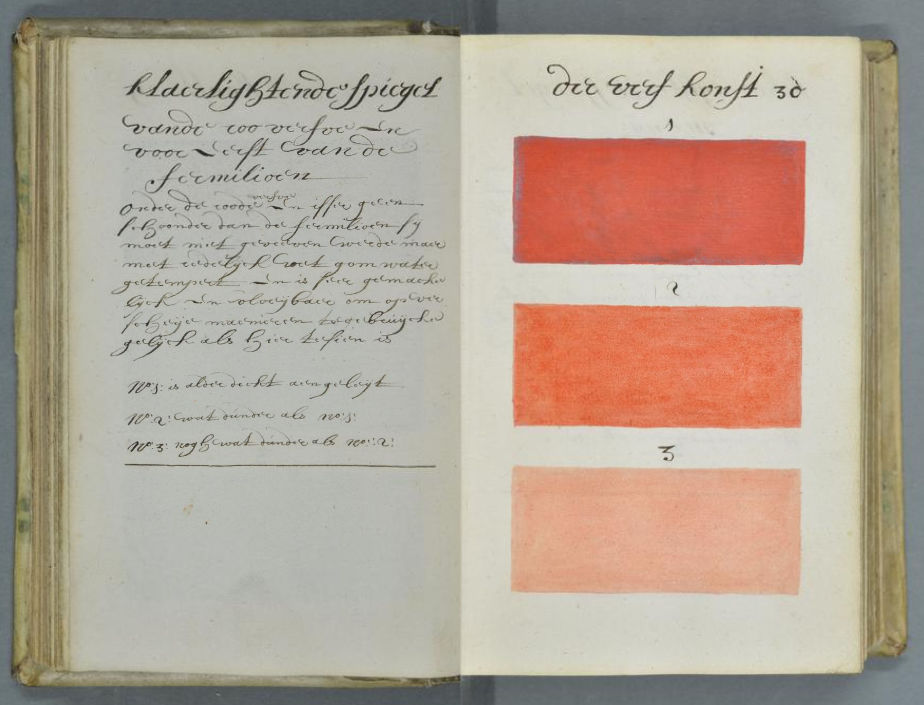 klaerlightende spiegel
vande roo verfve En
voor Eerst van de
fermilioen
verfve
onder de roode En isser geen
schoonder dan de fermilioen sy
moet niet gevreven werde maer
met redelyck vet gom water
getempert En is seer gemacke
lyck En vloeybaer om op ver
scheije manieren te gebruijcke
gelyck als hier te sien is
No: 1: is alder dickt aen geleyt
No: 2: wat dunder als No: 1:
No: 3: nogh wat dunder als No: 2:
der verf konst 30
1
2
3